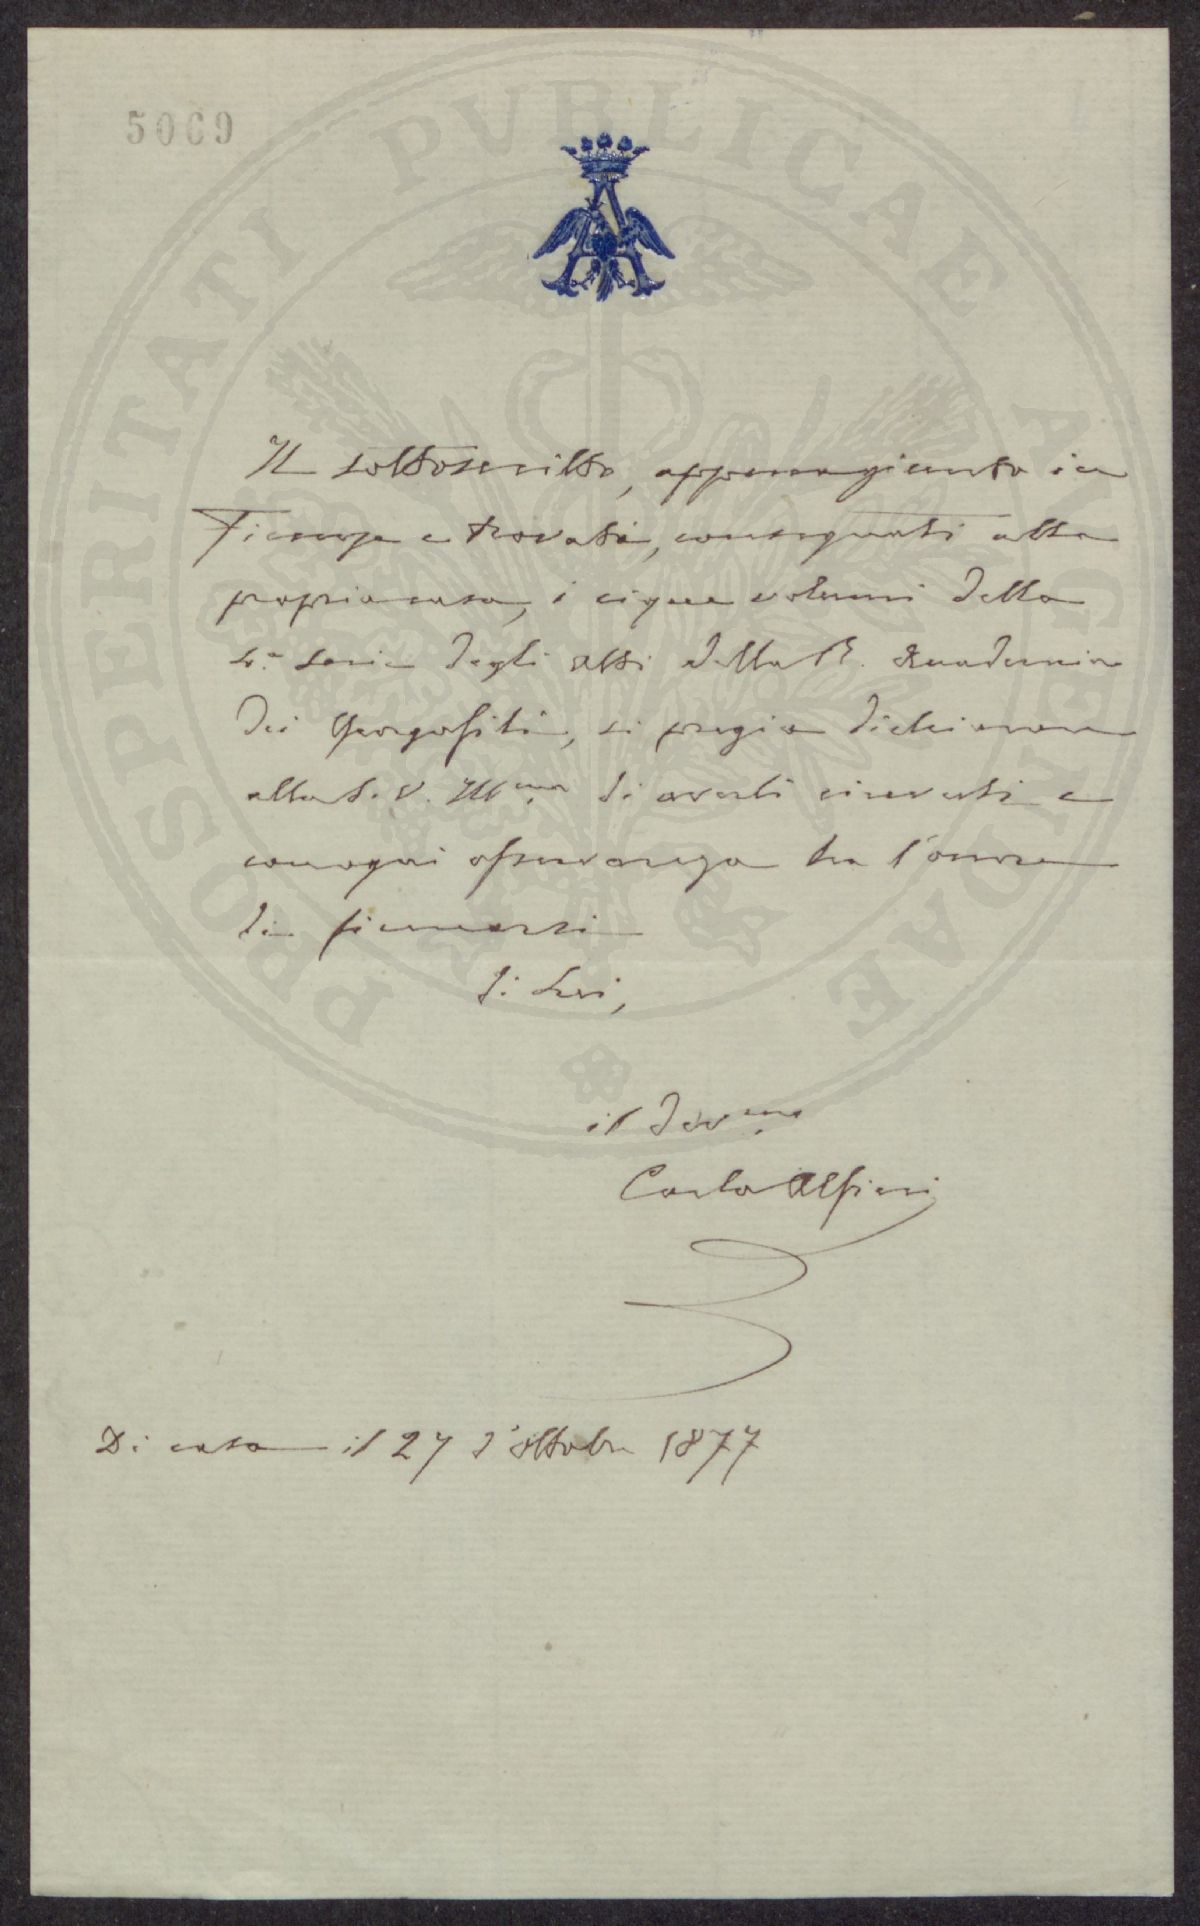 5069
PROSPERITATI PUBLICAE AUGENDAE
Il sottoscritto, appena giunto in
Firenze e trovati, consegnati alla
propria casa, i cique volumi della
4.a Serie degli Atti della R. Accademia
dei Georgofili, si pregia dichiarare
alla S. V. Ill.ma di averli ricevuti e
con ogni osservanza ha l'onore
di firmarsi
di Lei,
il Dev.mo
Carlo Alfieri
Di casa il 27 d'ottobre 1877